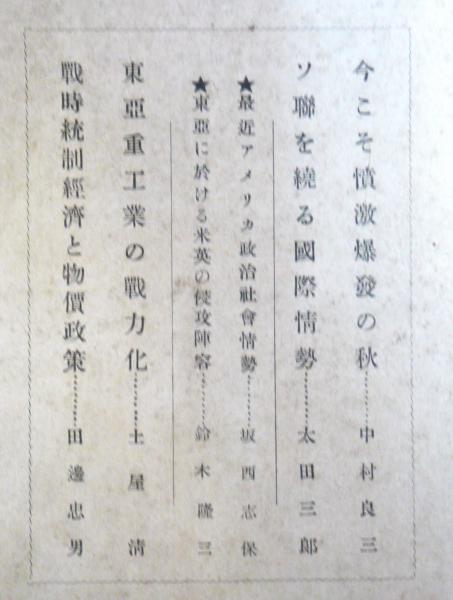 今こそ憤激爆發の秋…………中村良三
ソ聯を繞る國際情勢…………太田三郎
★最近アメリカ政治社會情勢…………坂西志保
★東亞に於ける米英の侵攻陣容…………鈴木隆三
東亞重工業の戰力化…………土屋清
戰時統制經濟と物價政策…………田邊忠男